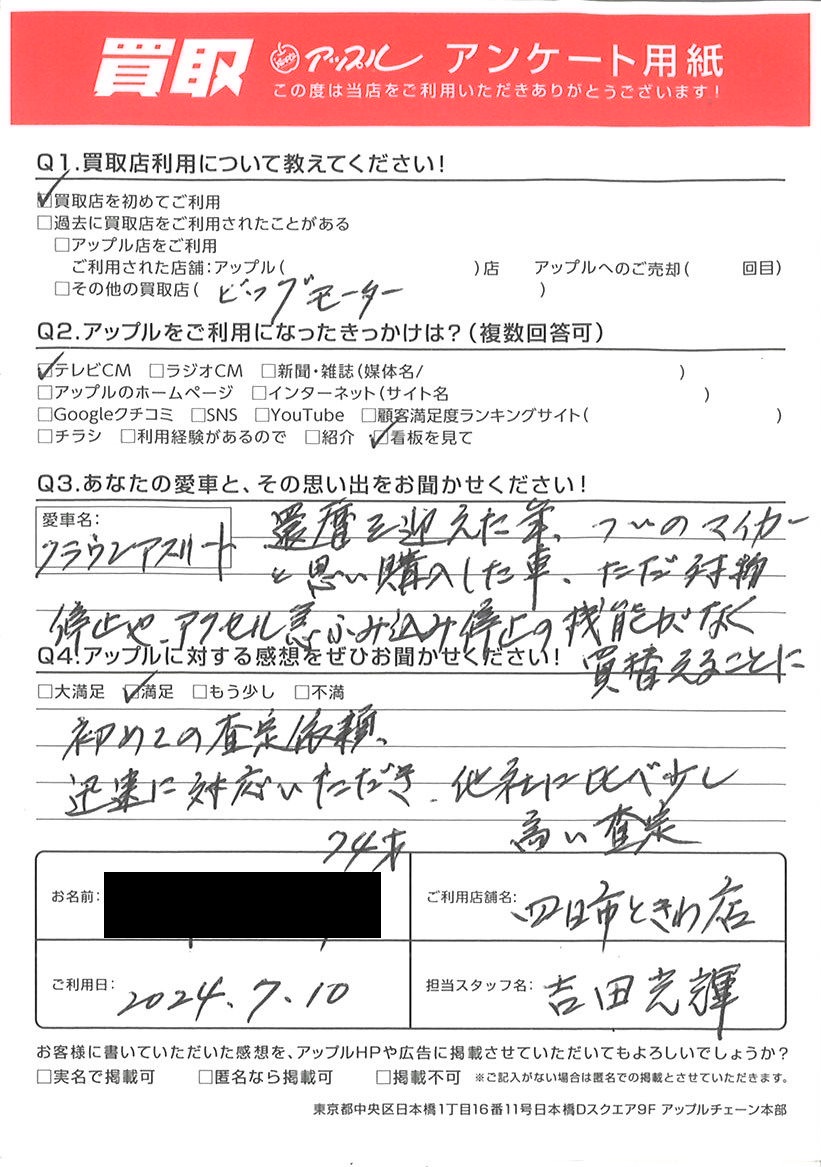 買取 アップル アンケート用紙
この度は当店をご利用いただきありがとうございます!
Q1.買取店利用について教えてください!
☑買取店を初めてご利用
□過去に買取店をご利用されたことがある
□アップル店をご利用
ご利用された店舗:アップル( )店 アップルへのご売却( 回目)
□その他の買取店( ビッグモーター )
Q2.アップルをご利用になったきっかけは?(複数回答可)
☑テレビCM □ラジオCM □新聞・雑誌(媒体名/ )
□アップルのホームページ □インターネット(サイト名 )
□Googleクチコミ □SNS □YouTube □顧客満足度ランキングサイト( )
□チラシ □利用経験があるので □紹介 ☑看板を見て
Q3.あなたの愛車と、その思い出をお聞かせください!
愛車名:
クラウンアスリート
還暦を迎えた年、ついのマイカー
と思い購入した車、ただ対物
停止や、アクセル急ふみ込み停止の機能がなく
買替えることに
Q4.アップルに対する感想をぜひお聞かせください!
□大満足 ☑満足 □もう少し □不満
初めての査定依頼、
迅速に対応いただき、他社に比べ少し
高い査定
74才
お名前:
ご利用店舗名: 四日市ときわ店
ご利用日: 2024.7.10
担当スタッフ名: 吉田光輝
お客様に書いていただいた感想を、アップルHPや広告に掲載させていただいてもよろしいでしょうか?
□実名で掲載可 □匿名なら掲載可 □掲載不可 ※ご記入がない場合は匿名での掲載とさせていただきます。
東京都中央区日本橋1丁目16番11号日本橋Dスクエア9F アップルチェーン本部